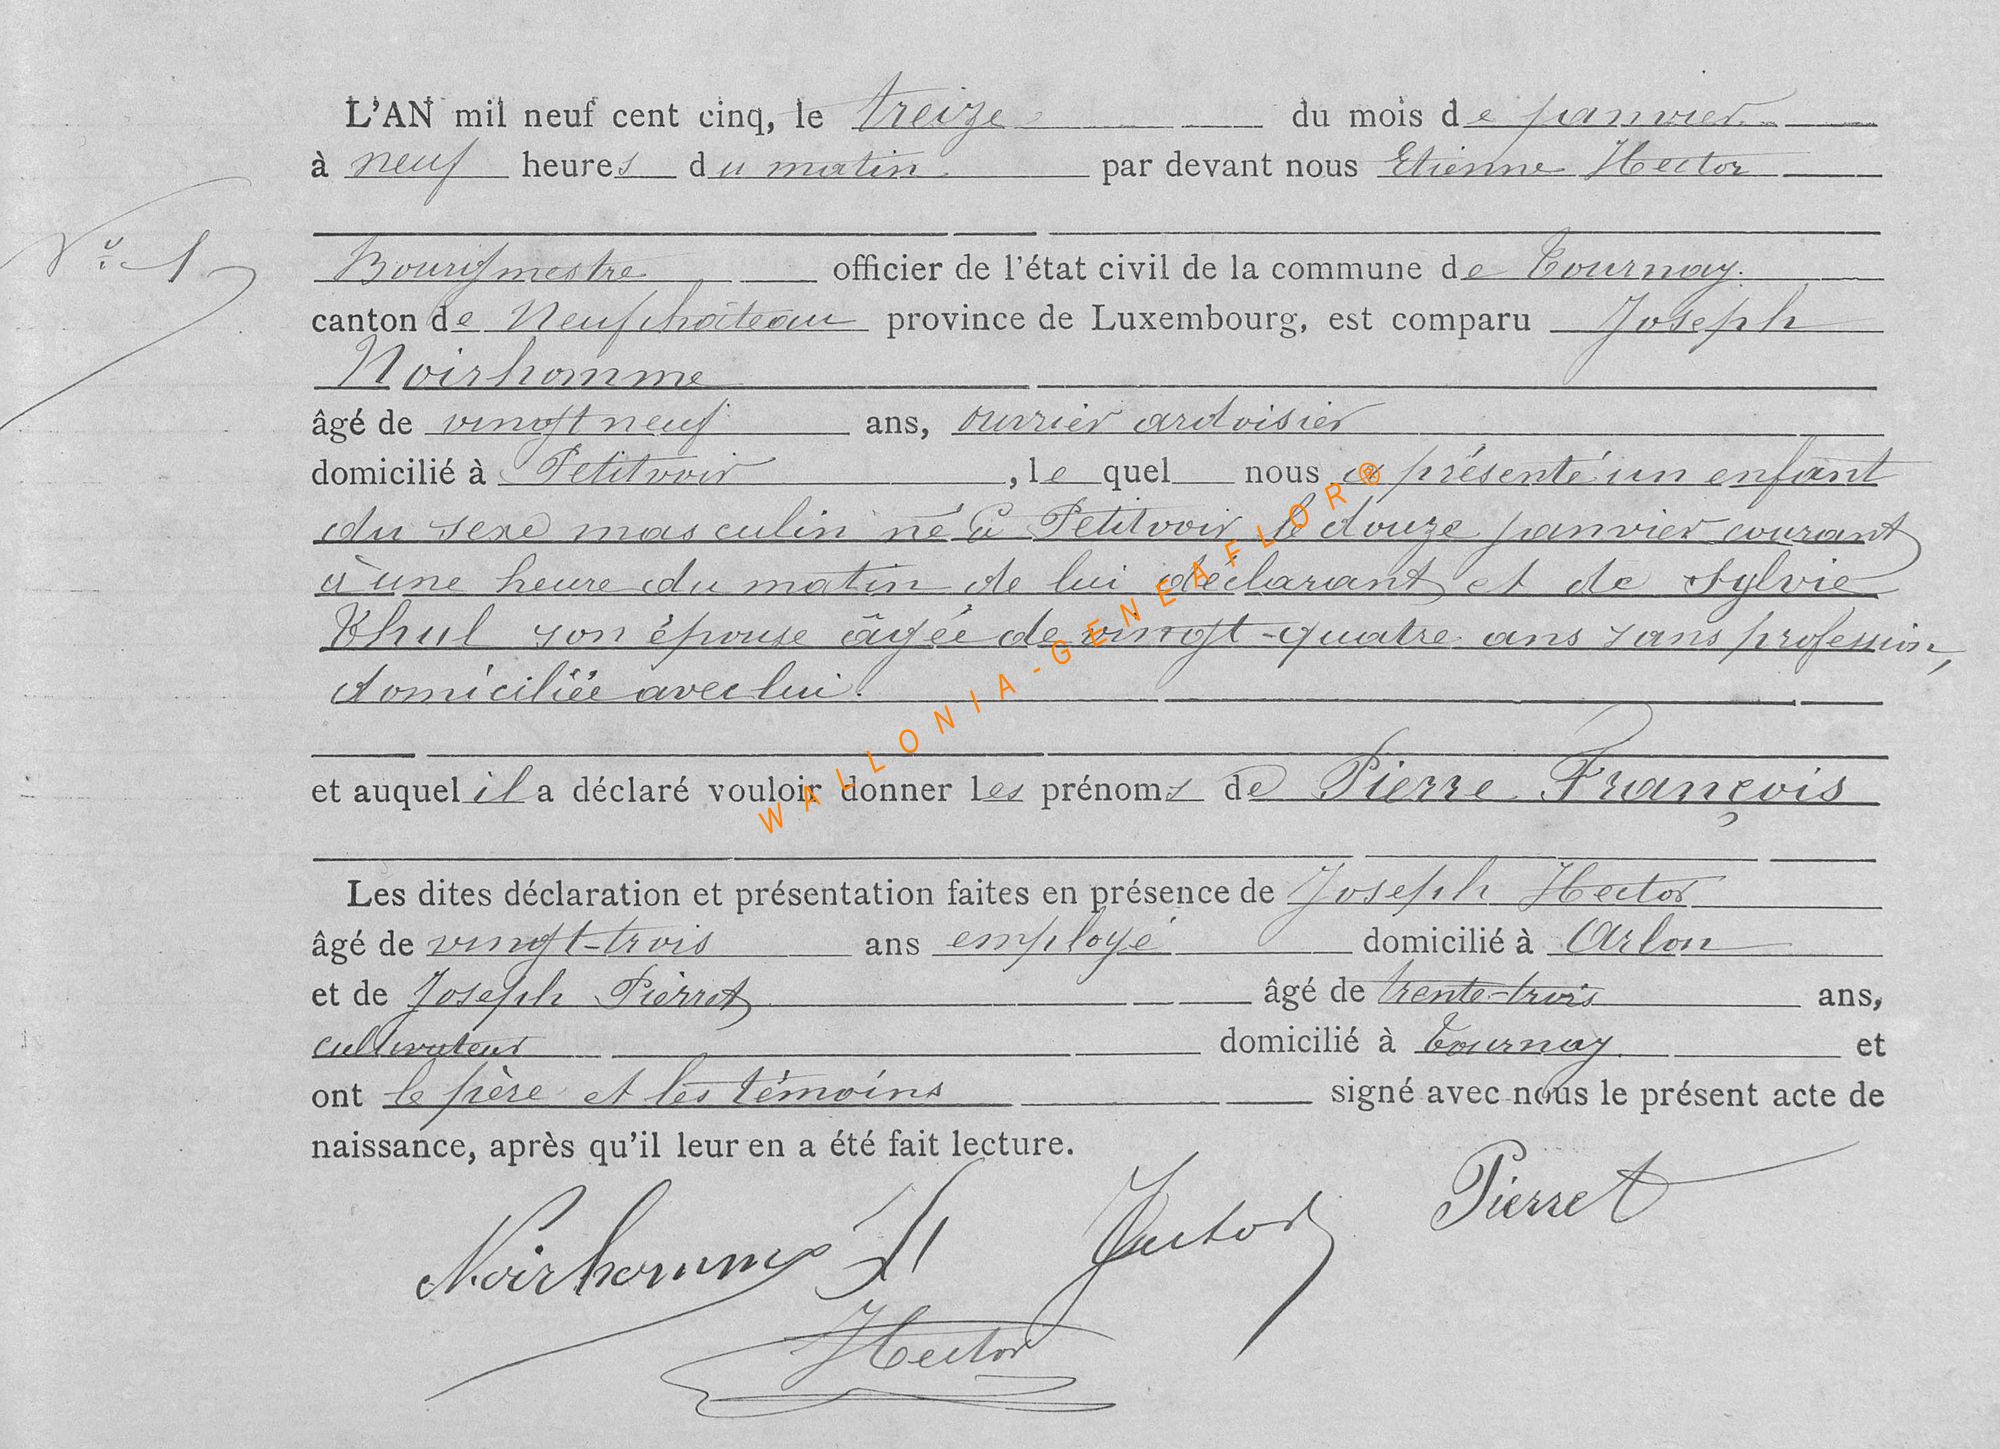 L'AN mil neuf cent cinq, le treize du mois de janvier
à neuf heures du matin par devant nous Etienne Hector
N° 1
Bourgmestre officier de l'état civil de la commune de Tournay.
canton de Neufchâteau province de Luxembourg, est comparu Joseph
Noirhomme
âgé de vingt neuf ans, ouvrier ardoisier
domicilié à Petitvoir, le quel nous a présenté un enfant
du sexe masculin né à Petitvoir le douze janvier courant
à une heure du matin de lui déclarant et de Sylvie
Khul son épouse âgée de vingt-quatre ans sans profession,
domiciliée avec lui.
et auquel il a déclaré vouloir donner les prénoms de Pierre François
Les dites déclaration et présentation faites en présence de Joseph Hector
âgé de vingt-trois ans employé domicilié à Arlon
et de Joseph Pierret âgé de trente-trois ans,
cultivateur domicilié à Tournay et
ont le père et les témoins signé avec nous le présent acte de
naissance, après qu'il leur en a été fait lecture.
Noirhomme J Hector Pierret
Hector
WALLONIA-GENEAFLOR®